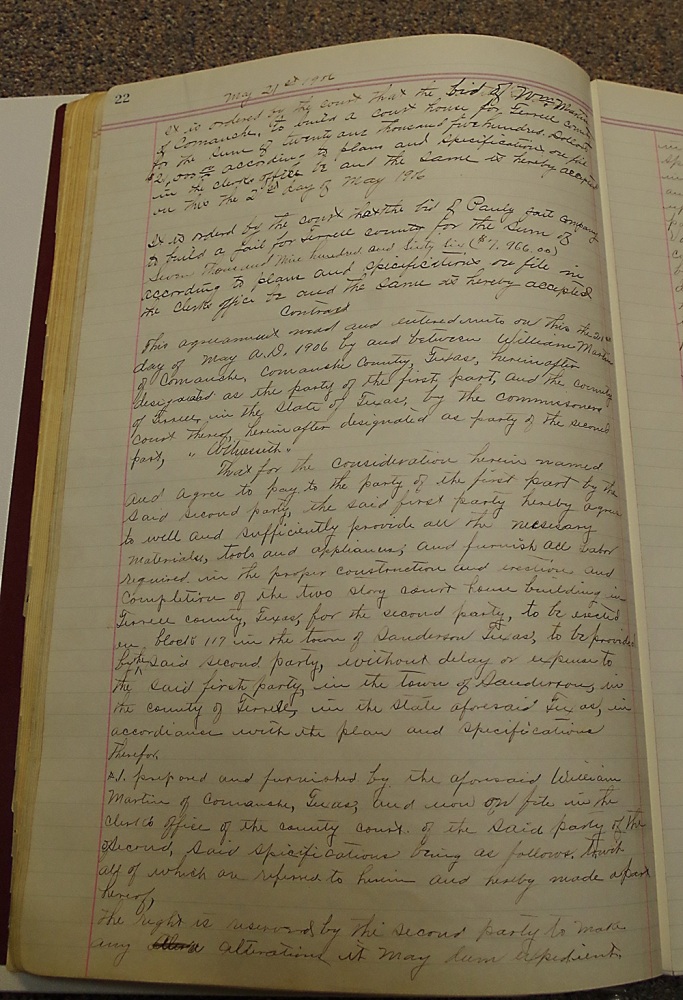 22
May 21st 1906
It is ordered by the court that the bid of Wm Martin
of Comanche, to build a court house for Terrell county
for the sum of twenty one thousand five hundred Dollars
according to plans and specification on file
in the clerks office be and the same is hereby accepted
on this the 2 day of May 1906
It is orderd by the court that the bid of Pauly Jail Company
to build a jail for Terrell county for the sum of
Seven Thousand Nine hundred and Sixty Six ($7,966.00)
according to plans and specifications on file in
the clerks office be and the same is hereby accepted
Contract
This agreement made and entered into on this the 21st
day of May A.D. 1906 by and between William Martin
of Comanche, Comanche County, Texas, hereinafter
designated as the party of the first part, and the county
of Terrell, in the State of Texas, by the commissoners
court thereof, hereinafter designated as party of the second
part, "Witnesseth"
That for the consideration herein named
and agree to pay to the party of the first part by the
said second party, the said first party hereby agree
to well and sufficiently provide all the necessary
materials, tools and appliances, and furnish all labor
required in the proper construction and erection and
completion of the two story court house building in
Terrell county, Texas, for the second party, to be erected
on block 117 in the town of Sanderson Texas, to be provided
by the said second party, without delay or expense to
the said first party, in the town of Sanderson, in
the county of Terrell, in the State aforesaid Texas, in
accordiance with the plan and specifications
therefor.
prepared and furnished by the aforesaid William
Martin of Comanche, Texas, and now on file in the
clerk's office of the county court of the said party of the
second, said specifications being as follows, to wit
all of which are referred to herein and hereby made a part
hereof,
The right is reserved by the second party to make
any alterations it may deem expedient